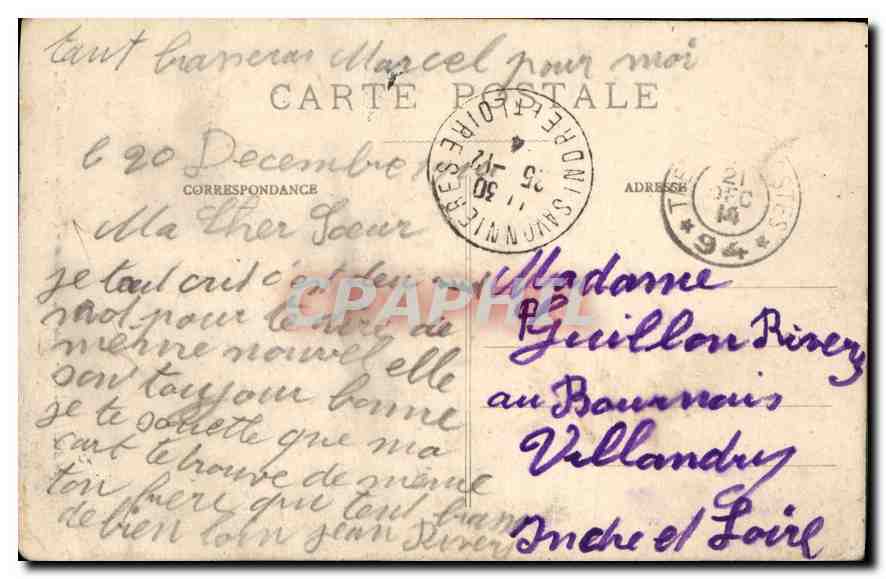 tant brasseras Marcel pour moi
CARTE POSTALE
le 20 Decembre
CORRESPONDANCE
ADRESSE
SAVONNIERES INDRE-ET-LOIRE
11 30
25 -12
4
21
DEC
14
* 94 *
Ma Cher Soeur
je tout crit c'at deu
mot pour te
meme nouvel elle
son toujour bonne
je te souette que ma
cart te trouve de meme
ton frere qui tout brans
de bien loin jean River
Madame
Guillon River
au Bournais
Villandry
Indre et Loire
CPAPHIL